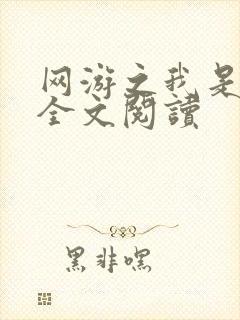 网游之我是
全文阅读
黑非嘿